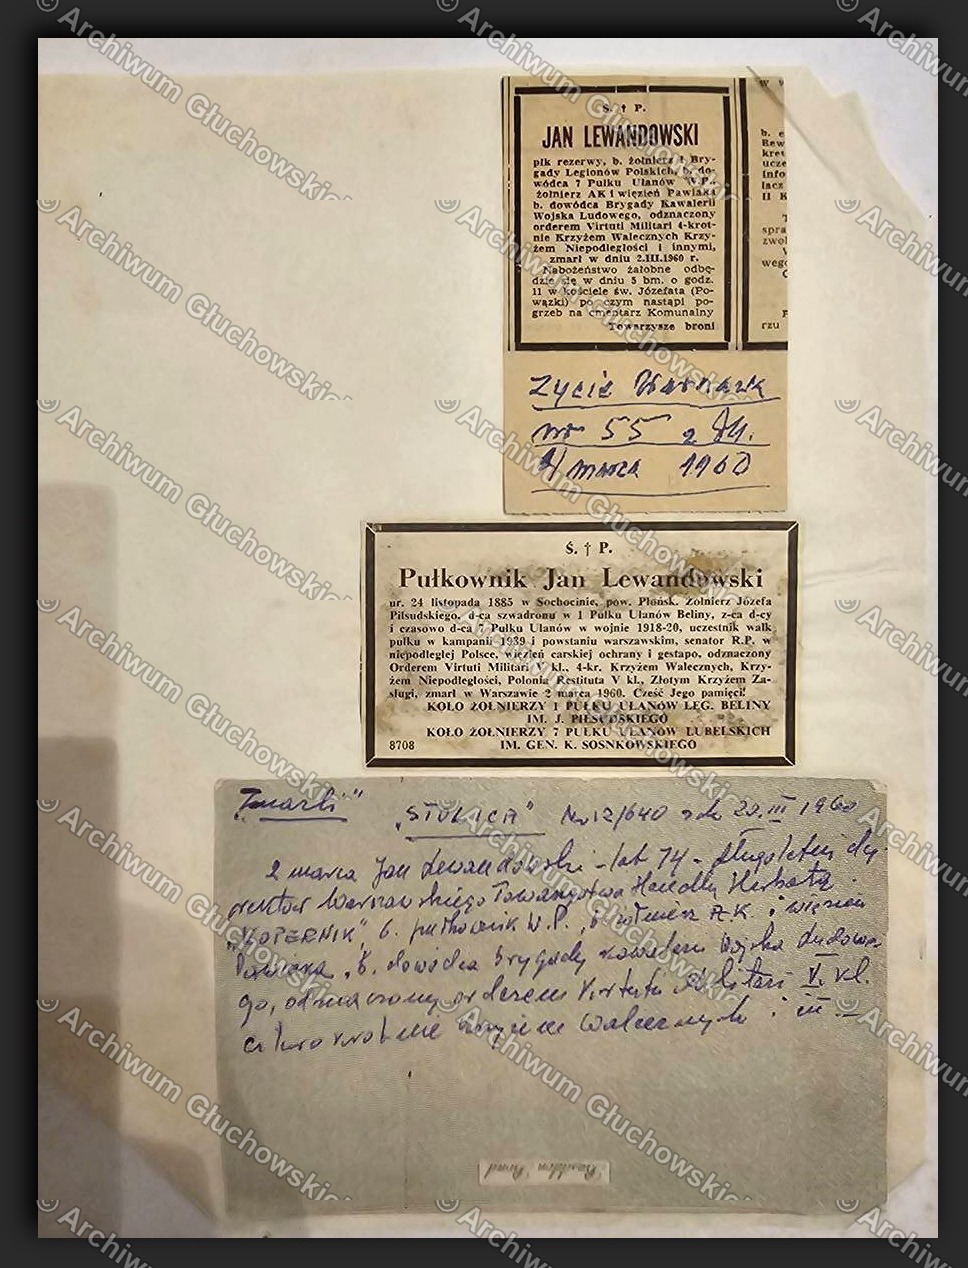 Ś. † P.
JAN LEWANDOWSKI
płk rezerwy, b. żołnierz I Bry-
gady Legionów Polskich, b. do-
wódca 7 Pułku Ułanów W.P.,
żołnierz AK i więzień Pawiaka
b. dowódca Brygady Kawalerii
Wojska Ludowego, odznaczony
orderem Virtuti Militari 4-krot-
nie Krzyżem Walecznych Krzy-
żem Niepodległości i innymi,
zmarł w dniu 2.III.1960 r.
Nabożeństwo żałobne odbę-
dzie się w dniu 5 bm. o godz.
11 w kościele św. Józefata (Po-
wązki) po czym nastąpi po-
grzeb na cmentarz Komunalny
Towarzysze broni
Życie Warszawy
nr 55 z dn.
4 marca 1960
Ś. † P.
Pułkownik Jan Lewandowski
ur. 24 listopada 1885 w Sochocinie, pow. Płońsk. Żołnierz Józefa
Piłsudskiego, d-ca szwadronu w 1 Pułku Ułanów Beliny, z-ca d-cy
i czasowo d-ca 7 Pułku Ułanów w wojnie 1918-20, uczestnik walk
pułku w kampanii 1939 i powstaniu warszawskim, senator R.P. w
niepodległej Polsce, więzień carskiej ochrany i gestapo, odznaczony
Orderem Virtuti Militari kl., 4-kr. Krzyżem Walecznych, Krzy-
żem Niepodległości, Polonia Restituta V kl., Złotym Krzyżem Za-
sługi, zmarł w Warszawie 2 marca 1960. Cześć Jego pamięci!
KOŁO ŻOŁNIERZY 1 PUŁKU UŁANÓW LEG. BELINY
IM. J. PIŁSUDSKIEGO
KOŁO ŻOŁNIERZY 7 PUŁKU UŁANÓW LUBELSKICH
8708 IM. GEN. K. SOSNKOWSKIEGO
"Zmarli" "STOLICA" Nr 12/640 z dn 20.III 1960
2 marca Jan Lewandowski - lat 74 - długoletni dy-
rektor Warszawskiego Towarzystwa Handlu Herbatą
"KOPERNIK", b. pułkownik W.P., żołnierz AK i więzień
Pawiaka, b. dowódca brygady kawalerii Wojska Ludowe-
go, odznaczony orderem Virtuti Militari V kl.
czterokrotnie krzyżem Walecznych i in –
© Archiwum Głuchowskich